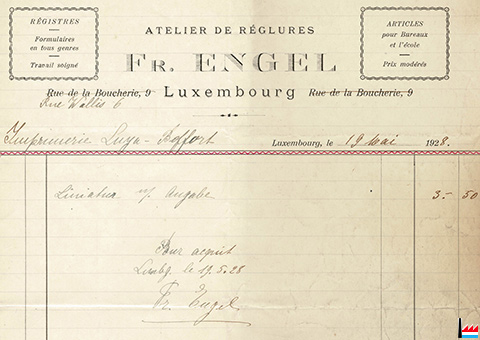 REGISTRES
Formulaires
en tous genres
Travail soigné
ATELIER DE RÉGLURES
FR. ENGEL
Luxembourg
ARTICLES
pour Bureaux
et l'école
Prix modérés
Rue de la Boucherie, 9
Rue de la Boucherie, 9
Rue Wallis 6
Imprimerie
Luxembourg, le 19 Mai 1928.
Liniatur n/ Angabe 3- 50
Pour acquit
Luxbg. le 19.5.28
Fr. Engel